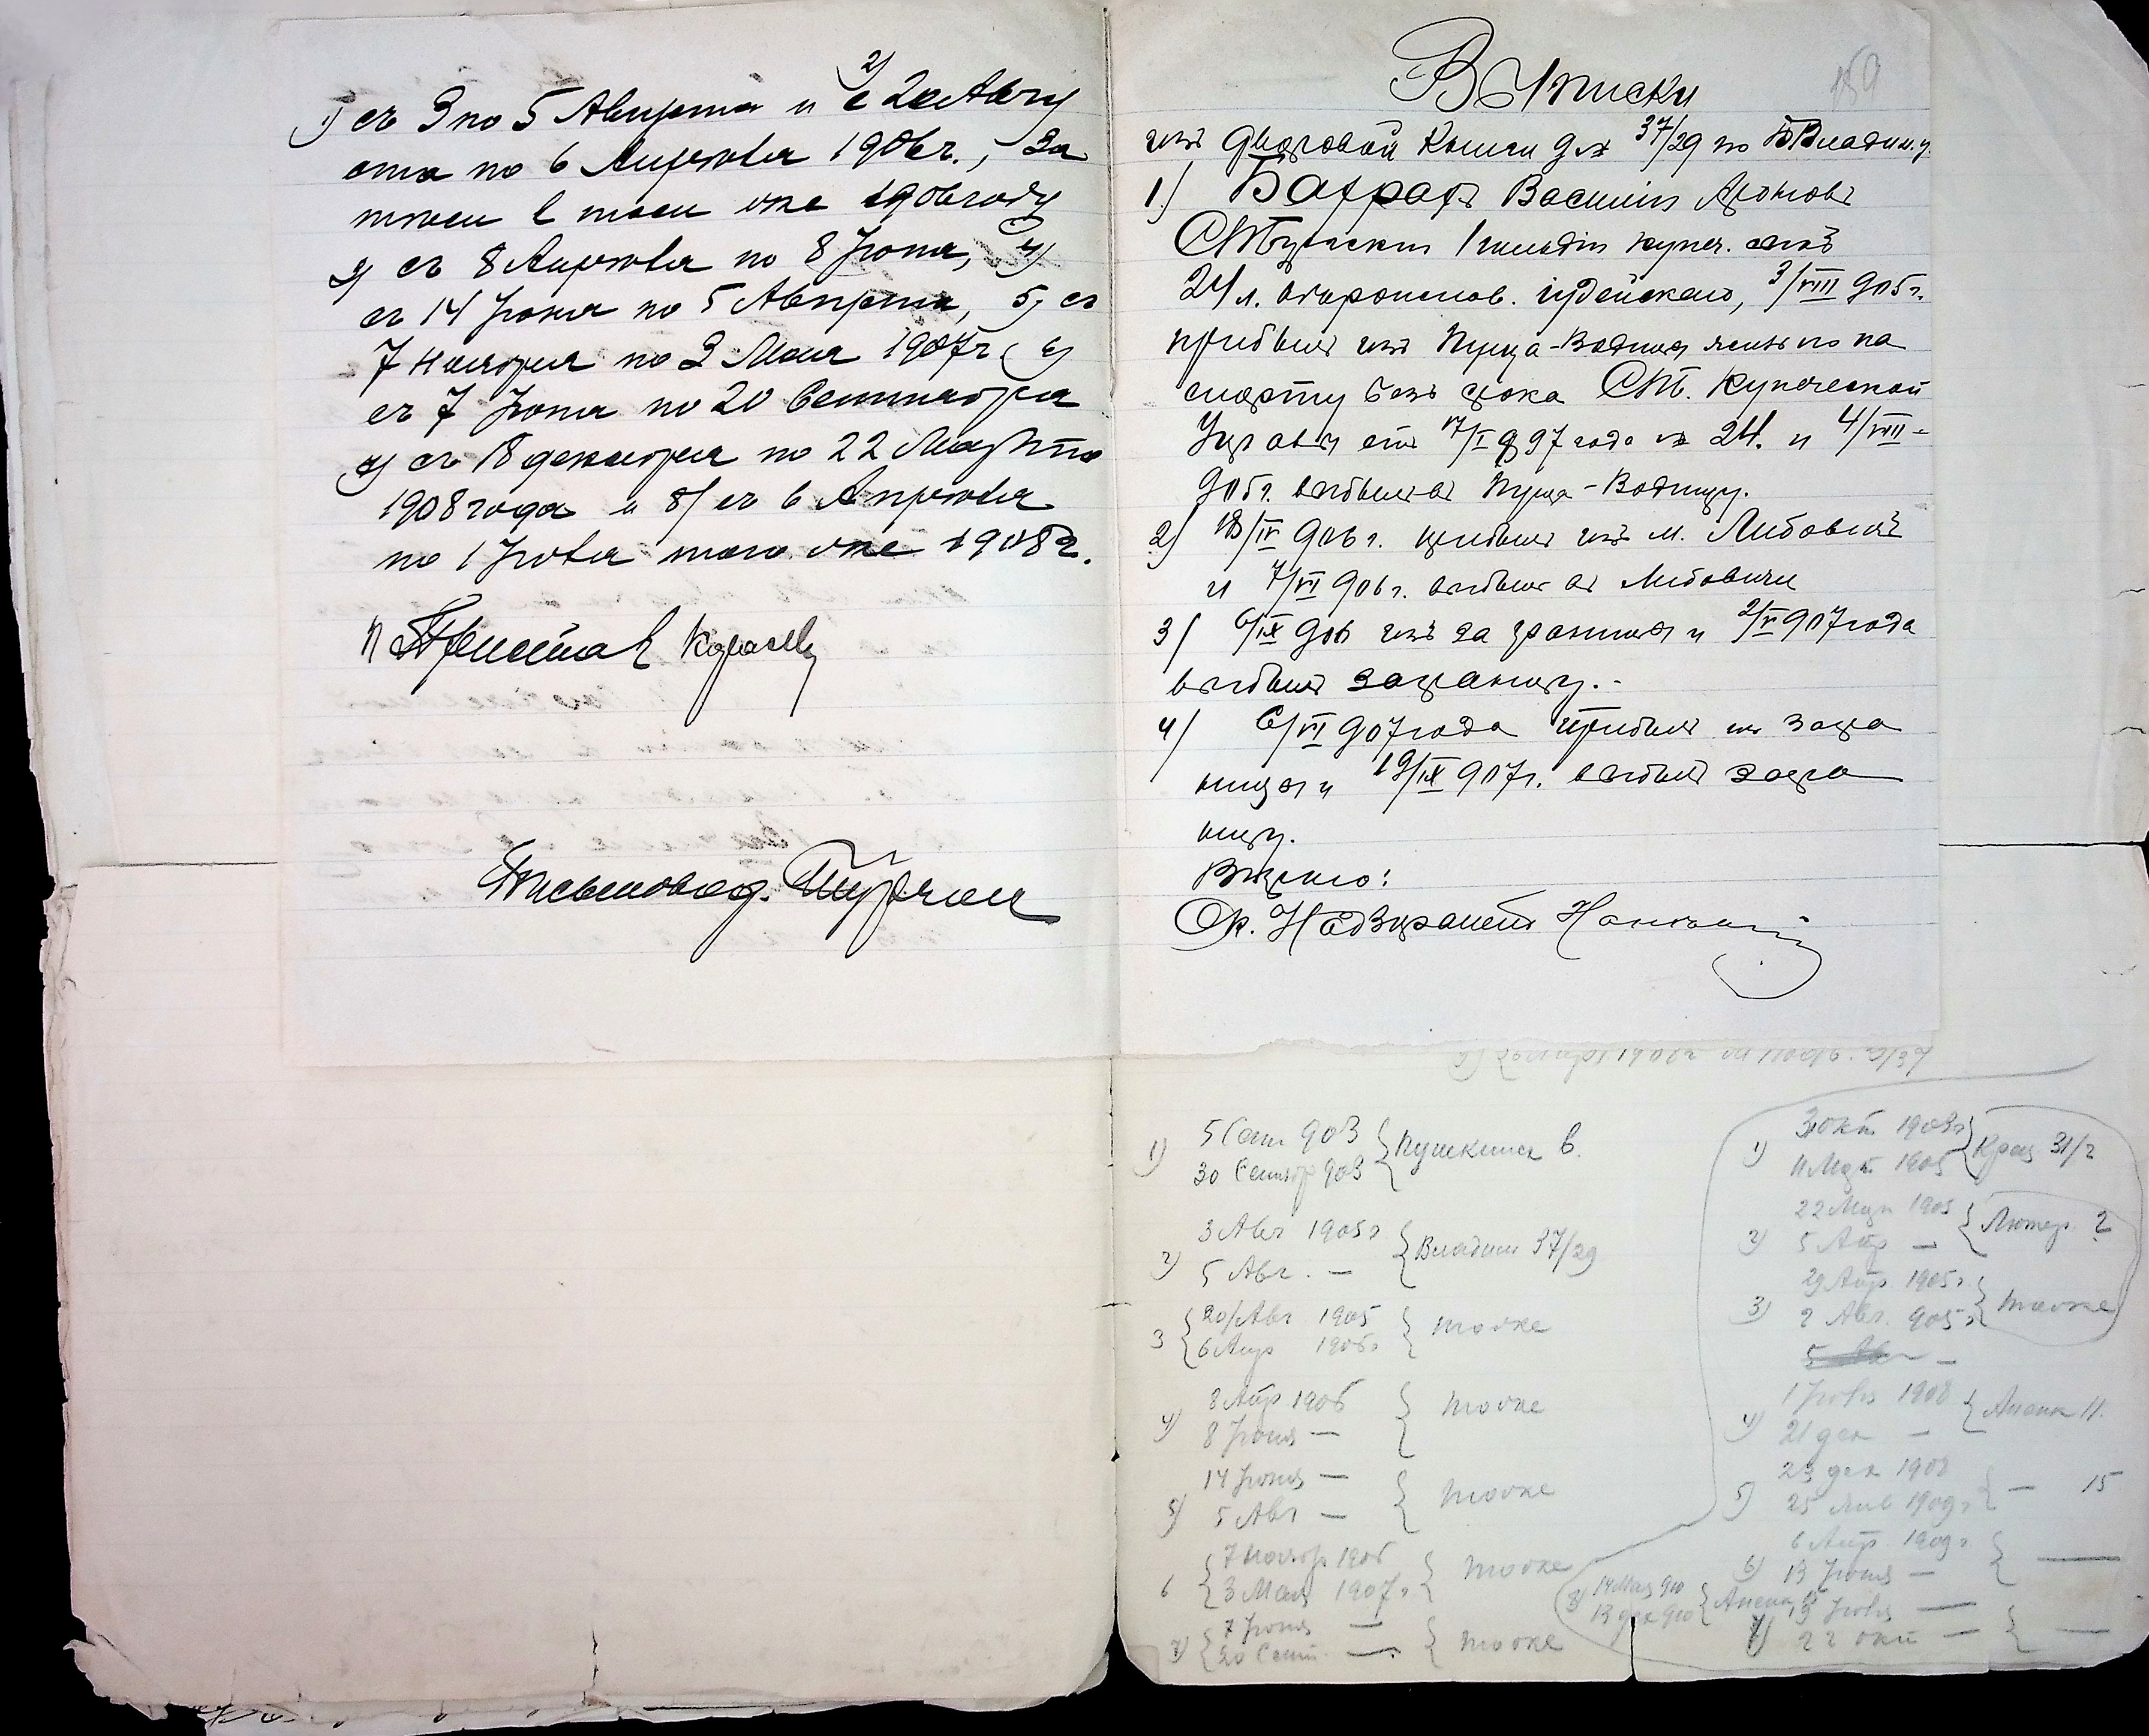 1) съ 3 по 5 Августа и 2) с 20 Авгу
ста по 6 Апрѣля 1906 г., За
тѣмъ в томъ же 1906 году
3) съ 8 Апрѣля по 8 Iюня, 4)
съ 14 Iюня по 5 Августа, 5) съ
7 Ноября по 3 Мая 1907 г 6)
съ 7 Iюня по 20 Сентября
7) съ 18 декабря по 22 Марта
1908 года и 8) съ 6 Апрѣля
по 1 Iюля того же 1908 г.
Письмовод.
Выписки
159
изъ дворовой Книги д № 37/29 по Б Владим. у.
1) Василій Ароновъ
1 гильдіи купеч. сынъ
24 л. вѣроисповѣд. іудейскаго, 3/VIII 905 г.
прибылъ изъ Пуща-Водица по па
спорту безъ срока Купеческой
Управы отъ 17/I 897 года № 24. и 4/VIII -
905 г. выбылъ въ Пуща-Водицу.
2) 18/IV 906 г. прибылъ изъ м.
и 7/VI 906 г. выбылъ въ
3) 6/IX 906 изъ за границы и 2/V 907 года
выбылъ заграницу. -
4) 6/VI 907 года прибылъ изъ загра
ницы и 19/IX 907 г. выбылъ загра
ницу.
Вѣрно:
Ок. Надзиратель
1) 5 Сент 903
30 Сентяб 903 } Пушкинск 6.
2) 3 Авг 1905 г
5 Авг. — } Владим 37/29
3 { 20/Авг 1905
6 Апр 1906 г } тоже
4) 8 Апр 1906
8 Iюня — } тоже
5) 14 Iюня —
5 Авг — } тоже
6 { 7 Ноябр 1906
3 Мая 1907 г } тоже
7) { 7 Iюня —
20 Сент. — } тоже
1) 3 Окт 1903 г
11 Мрт. 1905 } Крещ 31/2
2) 22 Мрт 1905
5 Апр — } Лютер. 2
3) 29 Апр 1905 г.
2 Авг. 905 г } тоже
4) 1 Iюля 1908
21 дек — } Аненк 11.
5) 23 дек 1908
25 Янв 1909 г } — 15
6) 6 Апр 1909 г.
13 Iюня — } —
7) 19 Iюля —
22 окт — } —
8) 14 Мая 910
13 дек 910 } Аненк 15